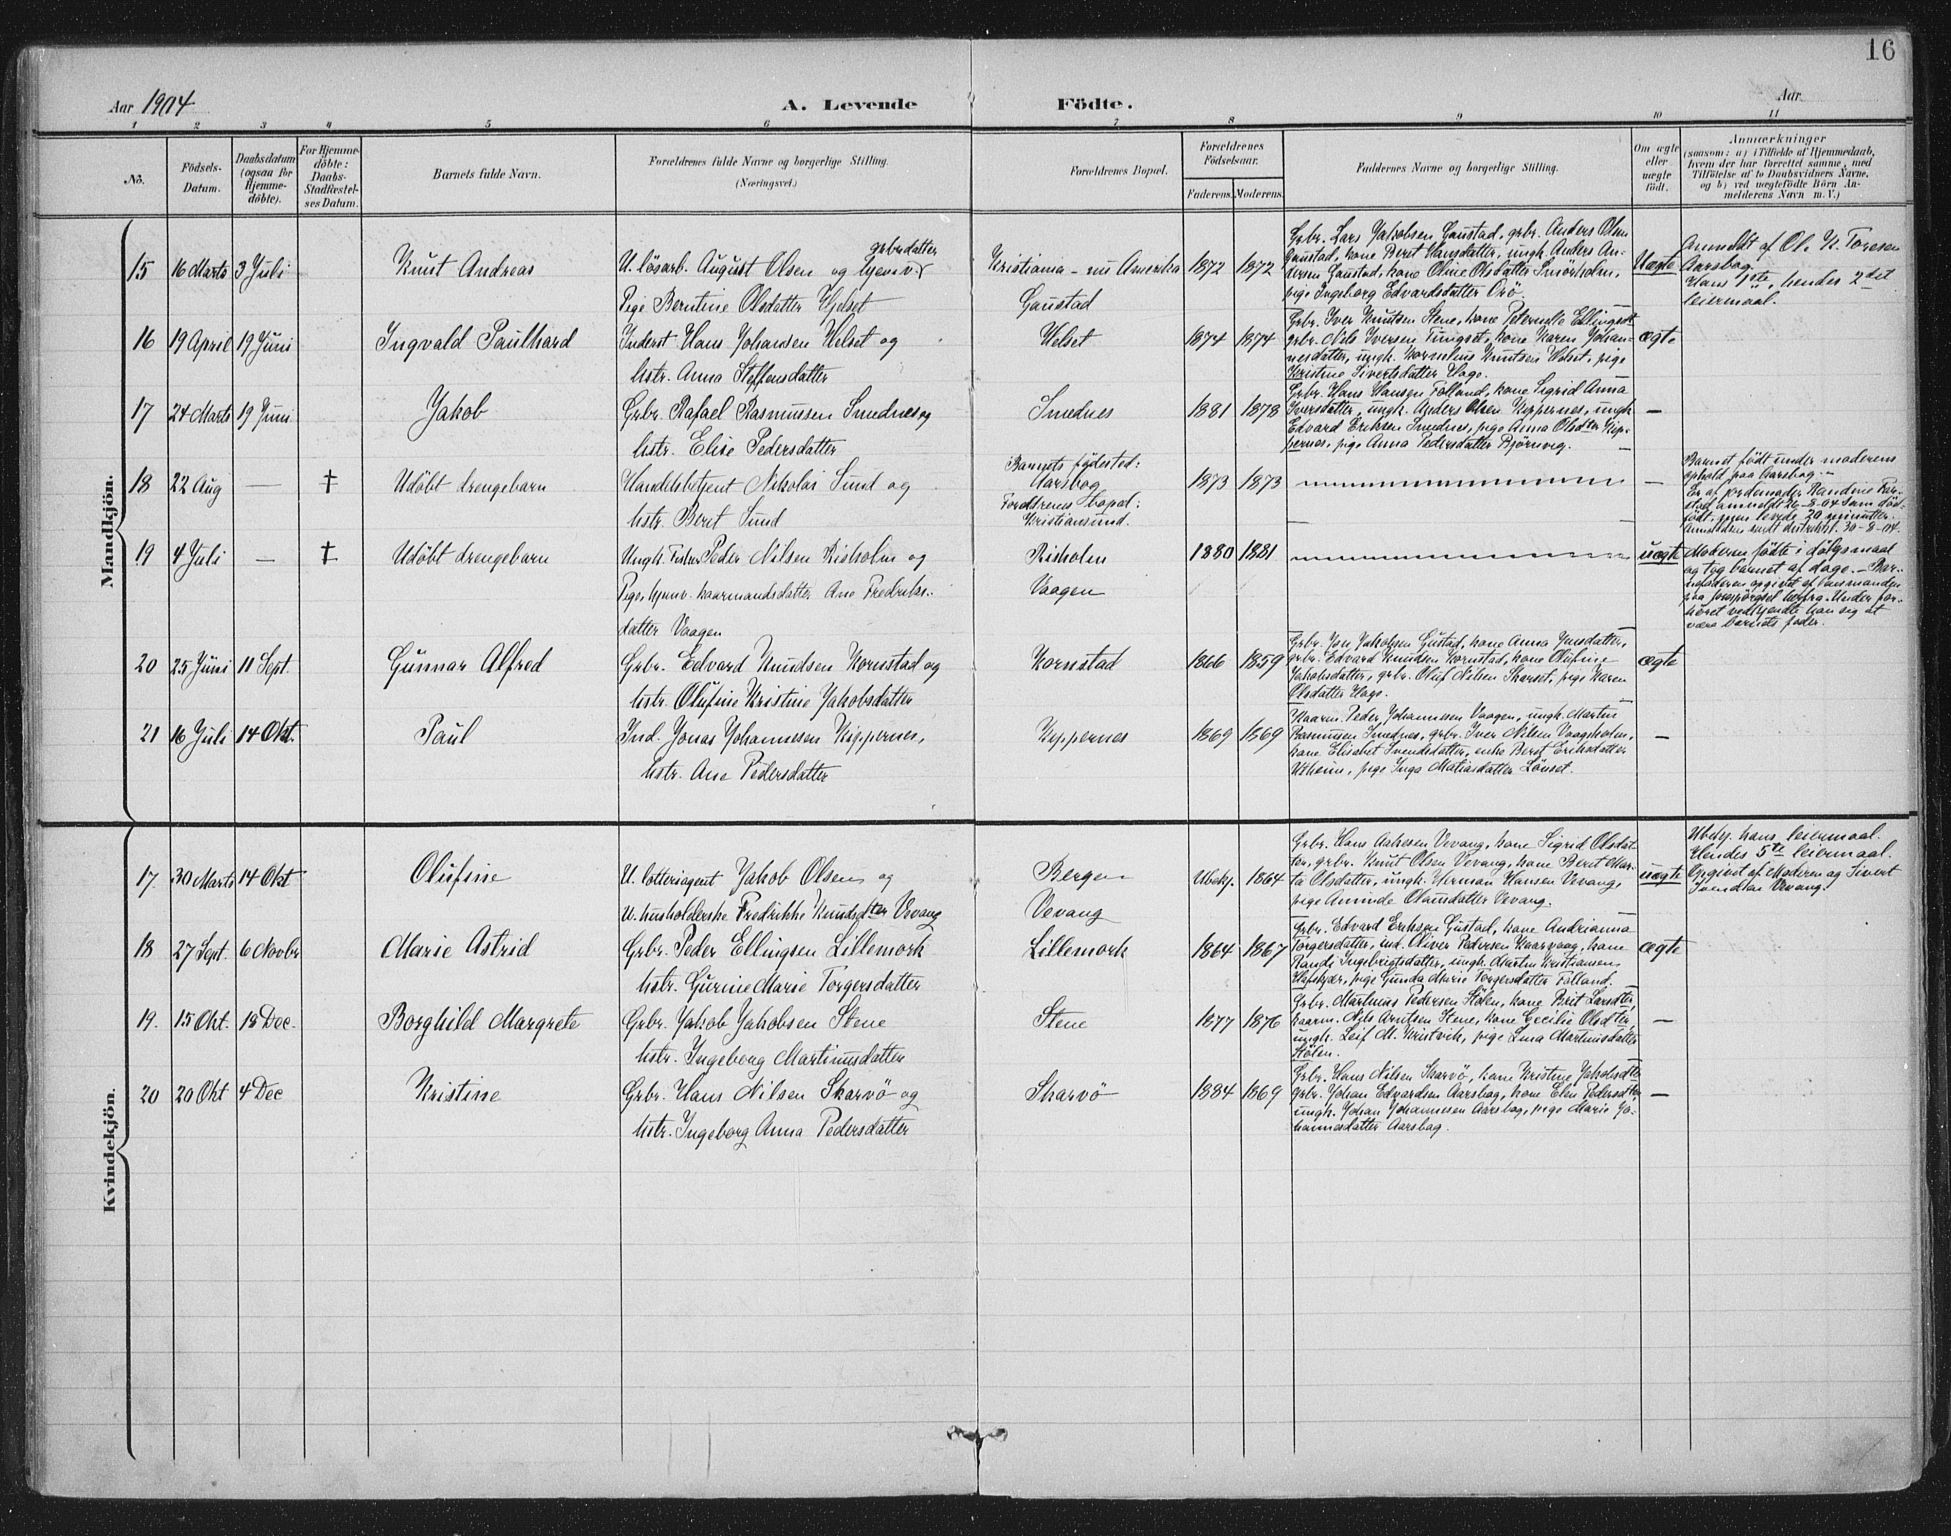 16
Aar 1904
A. Levende Födte.
Aar
1 2 3 4 5 6 7 8 9 10 11
No.
Födsels-Datum.
Daabsdatum (ogsaa for Hjemme-döbte).
For Hjemme-döbte: Daabs-Stadfæstel-ses Datum.
Barnets fulde Navn.
Forældrenes fulde Navne og borgerlige Stilling. (Næringsvei.)
Forældrenes Bopæl.
Forældrenes Födselsaar.
Faderens. Moderens.
Faddernes Navne og borgerlige Stilling.
Om ægte eller uægte födt.
Anmærkninger
(saasom: a) i Tilfælde af Hjemmedaab,
hvem der har forrettet samme, med
Tilföielse af to Daabsvidners Navne,
og b) ved uægtefödte Börn An-
melderens Navn m. V.)
Mandkjön.
15 16 Marts 3 Juli Knut Andreas
U. lösarb. August Olsen og hjemv. grbrdatter
Pige Berntine Olsdatter Helset
Kristiania - nu Amerika
Gaustad
1872 1872
Grbr. Lars Jakobsen Gaustad, grbr. Anders Olsen
Gaustad, kone Beret Hansdatter, ungk. Anders An-
dersen Gaustad, kone Oline Olsdatter Smörholm,
pige Ingeborg Edvardsdatter Orö.
Uægte
Anmeldt af Ol. N. Toresen
Aarsbog
Hans 1ste, hendes 2det
leiermaal.
16 19 April 19 Juni Ingvald Paulhard
Inderst Hans Johansen Helset og
hstr. Anna Steffensdatter
Helset
1874 1874
Grbr. Iver Knutsen Stene, kone Peternelle Ellingsdtr
grbr. Nils Iversen Tungset, kone Karen Johan-
nesdatter, ungk. Kornelius Knutsen Helset, pige
Kristine Sivertsdatter Hage.
ægte
17 24 Marts 19 Juni Jakob
Grbr. Rafael Rasmussen Smednes og
hstr. Elise Pedersdatter
Smednes
1881 1878
Grbr. Hans Hansen Folland, kone Sigrid Anna
Iversdatter, ungk. Anders Olsen Kippernes, ungk.
Edvard Eriksen Smednes, pige Anna Olsdter Kip-
pernes, pige Anna Pedersdatter Bjørnvig.
—
18 22 Aug — † Udöbt drengebarn
Handelsbetjent Nikolai Sund og
hstr. Beret Sund
Barnets födested:
Aarsbog
Forældrenes bopæl:
Kristiansund.
1873 1873
—
Barnet födt under moderens
ophold paa Aarsbog —
Er af jordemoder Randine Far-
stad anmeldt 26-8-04 som död-
födt, men levede 20 minutter.
Anmeldelsen sendt distriktsl. 30-8-04.
19 4 Juli — † Udöbt drengebarn
Ungk. Fisker Peder Nilsen Risholm og
Pige, hjemv. kaarmandsdatter Ane Fredriks-
datter Vaagen
Risholm
Vaagen
1880 1881
uægte
Moderen födte i dölgsmaal
og tog barnet af dage. — Bar-
nefaderen opgivet af lensmanden
paa forespörgsel herfra. Under for-
höret vedkjendte han sig at
være barnets fader.
20 25 Juni 11 Sept. Gunnar Alfred
Grbr. Edvard Knudsen Kornstad og
hstr. Olufine Kristine Jakobsdatter
Kornstad
1866 1859
Grbr. Jon Jakobsen Gustad, kone Anna Jonsdatter,
grbr. Edvard Knudsen Kornstad, kone Olufine
Jakobsdatter, grbr. Oluf Nilsen Skarset, pige Karen
Olsdatter Hage.
ægte
21 16 Juli 14 Okt. Paul
Ind. Jonas Johannesen Kippernes,
hstr. Ane Pedersdatter
Kippernes
1869 1869
Kaarm. Peder Johannesen Vaagen, ungk. Martin
Rasmussen Smednes, grbr. Iver Nilsen Vaagsholm,
kone Elisabet Svendsdatter, enke Beret Eriksdatter
Utheim, pige Inga Matiasdatter Lönset.
—
Kvindekjön.
17. 30 Marts 14 Okt Olufine
U. Lotteriagent Jakob Olsen og
U. husholderske Fredrikke Knudsdter Vevang
Bergen
Vevang
Ubekj. 1864
Grbr. Hans Aakesen Vevang, kone Sigrid Olsdat-
ter, grbr. Knut Olsen Vevang, kone Beret Mar-
ta Olsdatter, ungk. Herman Hansen Vevang,
pige Aminde Olausdatter Vevang.
uægte
Ubekj. hans leiermaal.
Hendes 5te leiermaal.
Opgivet af Moderen og Sivert
Vevang.
18 27 Sept. 6 Novbr Marie Astrid
Grbr. Peder Ellingsen Lillemork
hstr. Gurine Marie Torgersdatter
Lillemork
1864 1867
Grbr. Edvard Eriksen Gustad, kone Andrianna
Torgersdatter, ind. Oliver Pedersen Kaarvaag, kone
Randi Ingebrigtsdatter, ungk. Martin Kristiansen
Hafskjær, pige Gunda Marie Torgersdatter Folland.
ægte
19. 15 Okt. 18 Dec. Borghild Margrete
Grbr. Jakob Jakobsen Stene
hstr. Ingeborg Martinusdatter
Stene
1877 1876
Grbr. Martinus Pedersen Stölen, kone Brit Larsdter,
kaarm. Nils Arntsen Stene, kone Cecilie Olsdter,
ungk. Leif M. Kristvik, pige Lina Martinusdatter
Stölen.
—
20 20 Okt 4 Dec Kristine
Grbr. Hans Nilsen Skarvö og
hstr. Ingeborg Anna Pedersdatter
Skarvö
1884 1869
Grbr. Hans Nilsen Skarvö, kone Kristine Jakobsdter
grbr. Johan Edvardsen Aarsbog, kone Elen Pedersdtter,
ungk. Johan Johannesen Aarsbog, pige Marie Jo-
hannesdatter Aarsbog.
—